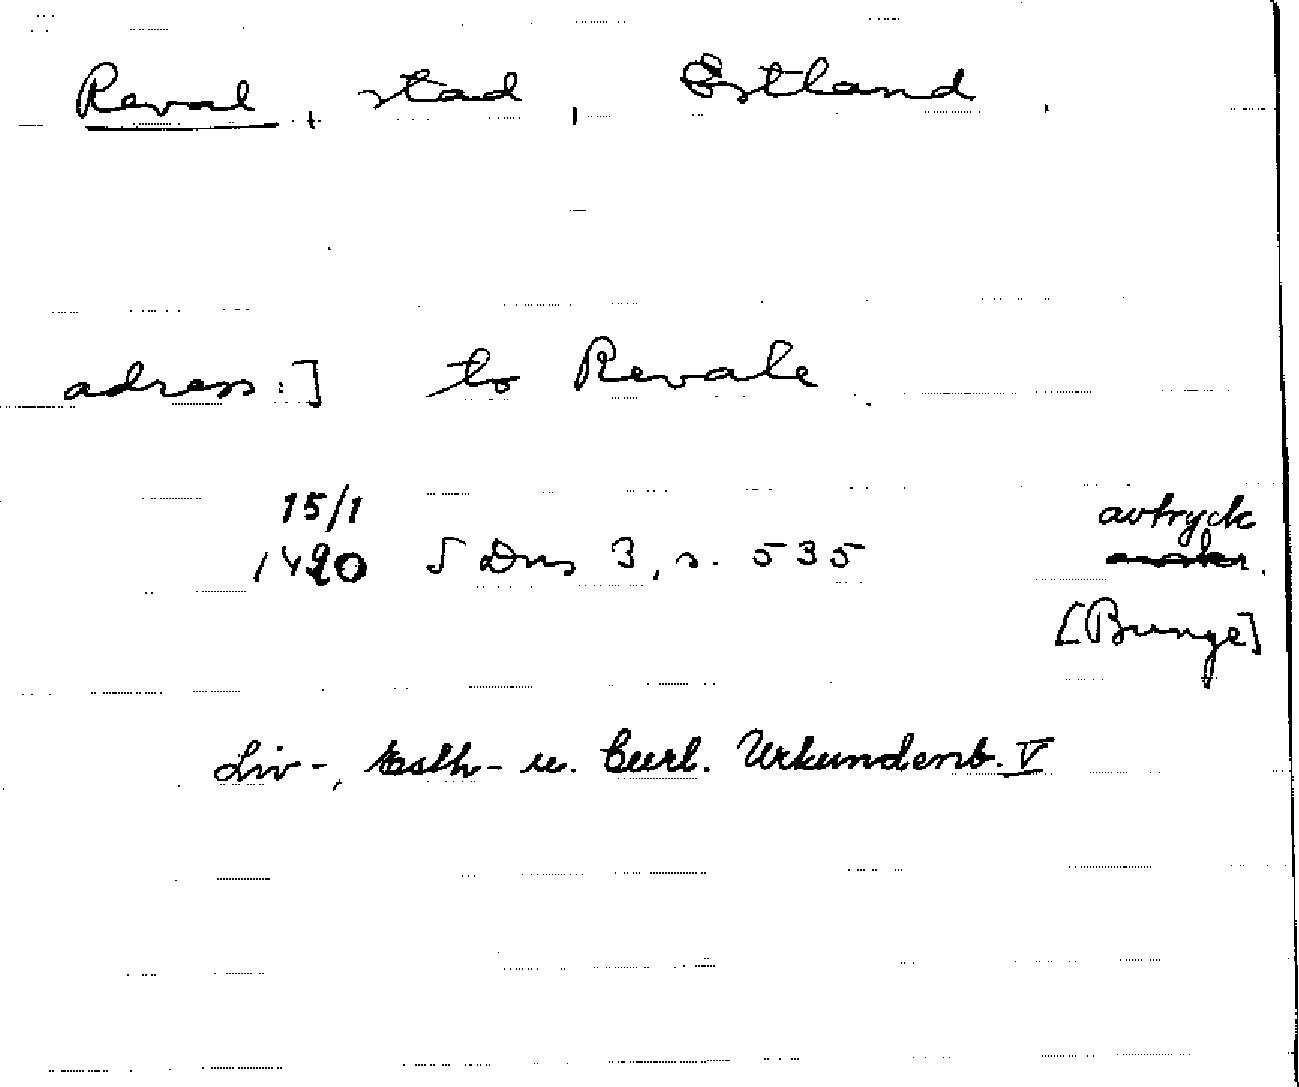 Reval, stad, Estland
adress:] to Revale
15/1 avtryck
1420 SDns 3, s. 535
[Bunge]
Liv-, Esth- u. Curl. Urkundenb. V